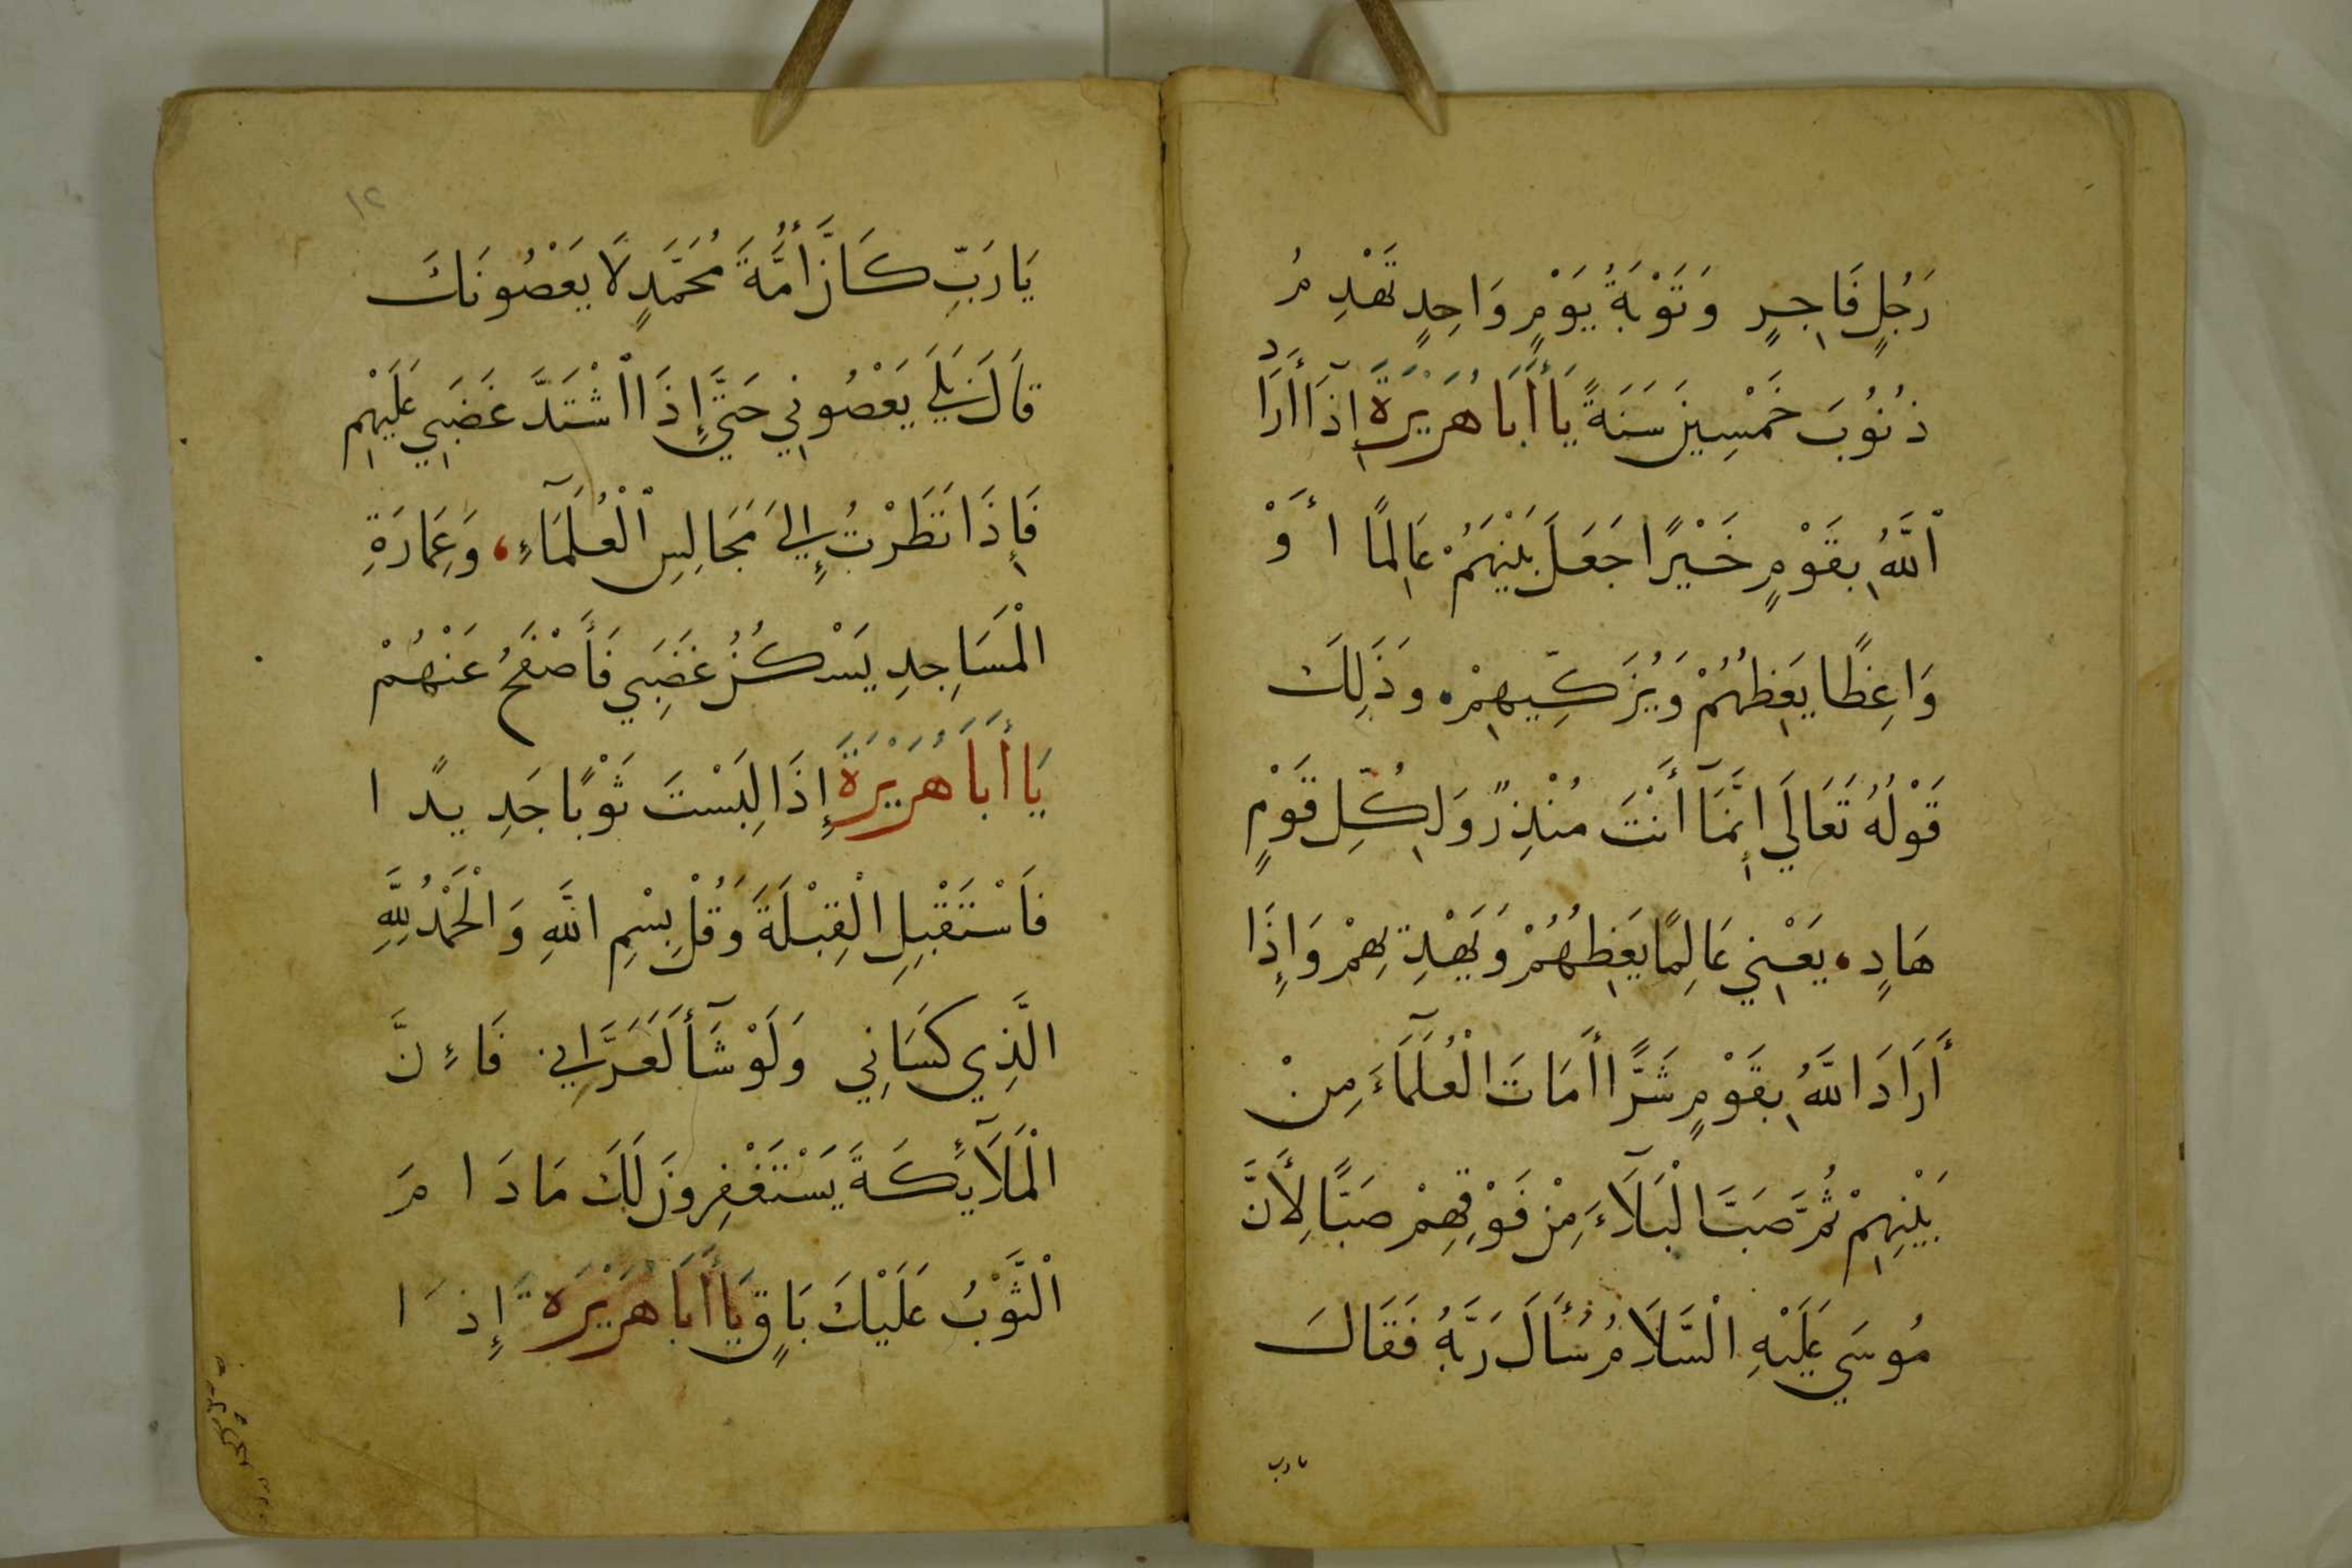 رَجُلٍ فَاجِرٍ وَتَوْبَةُ يَوْمٍ وَاحِدٍ تَهْدِمُ
ذُنُوبَ خَمْسِينَ سَنَةً يَا أَبَا هُرَيْرَةَ إِذَا أَرَادَ
ٱللَّهُ بِقَوْمٍ خَيْرًا جَعَلَ بَيْنَهُمْ عَالِمًا أَوْ
وَاعِظًا يَعِظُهُمْ وَيُزَكِّيهِمْ وَذَلِكَ
قَوْلُهُ تَعَالَي إِنَّمَآ أَنْتَ مُنْذِرٌ وَلِكُلِّ قَوْمٍ
هَادٍ يَعْنِي عَالِمًا يَعِظُهُمْ وَيَهْدِيهِمْ وَإِذَا
أَرَادَ اللَّهُ بِقَوْمٍ شَرًّا أَمَاتَ الْعُلَمَآءَ مِنْ
بَيْنِهِمْ ثُمَّ صَبَّ الْبَلَآءَ مِنْ فَوْقِهِمْ صَبًّا لِأَنَّ
مُوسَي عَلَيْهِ السَّلَامُ سَأَلَ رَبَّهُ فَقَالَ
يارب
١٢
يَا رَبِّ كَانَ أُمَّةَ مُحَمَّدٍ لَا يَعْصُونَكَ
قَالَ بَلَي يَعْصُونِي حَتَّي إِذَا اشْتَدَّ غَضَبِي عَلَيْهِمْ
فَإِذَا نَظَرْتُ إِلَي مَجَالِسِ ٱلْعُلَمَآءِ وَعِمَارَةِ
الْمَسَاجِدِ يَسْكُنُ غَضَبِي فَأَصْفَحُ عَنْهُمْ
يَا أَبَا هُرَيْرَةَ إِذَا لَبِسْتَ ثَوْبًا جَدِيدًا
فَاسْتَقْبِلِ الْقِبْلَةَ وَقُلْ بِسْمِ اللَّهِ وَالْحَمْدُ لِلَّهِ
الَّذِي كَسَانِي وَلَوْ شَآأَ لَعَرَّانِي فَاءِنَّ
الْمَلَآئِكَةَ يَسْتَغْفِرُونَ لَكَ مَا دَامَ
الثَّوْبُ عَلَيْكَ بَاقٍ يَا أَبَا هُرَيْرَةَ إِذَا